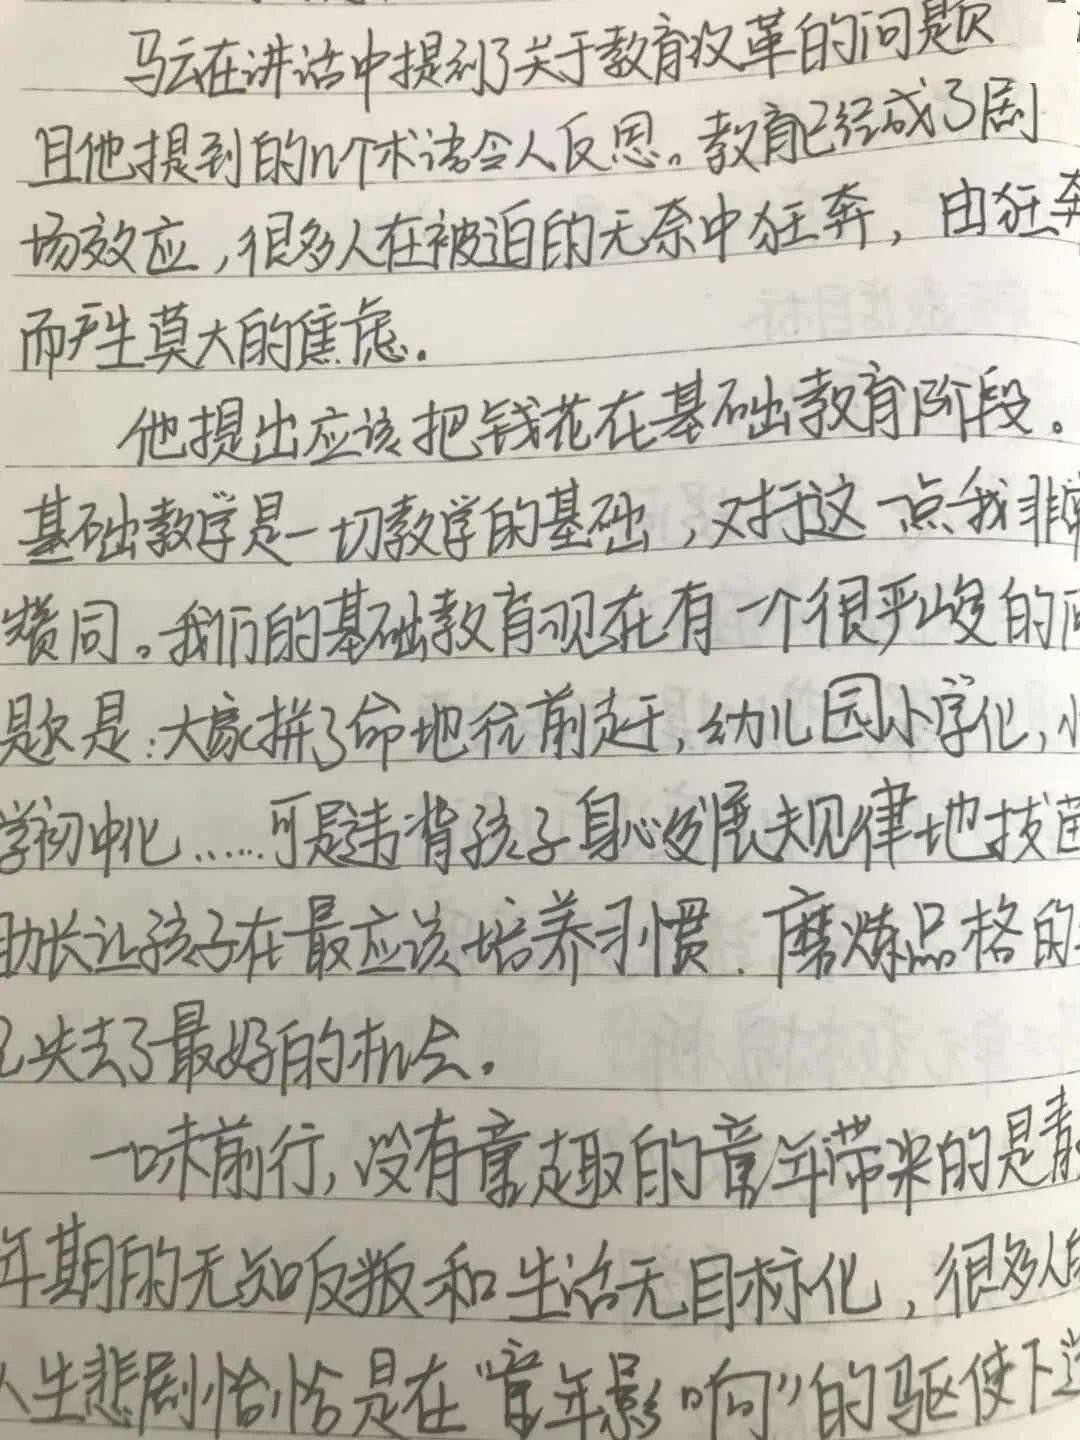 马云在讲话中提到了关于教育改革的问题
且他提到的n个术语令人反思。教育已经成了剧
场效应，很多人在被迫的无奈中狂奔，由狂奔
而产生莫大的焦虑。
他提出应该把钱花在基础教育阶段。
基础教学是一切教学的基础，对于这一点我非常
赞同。我们的基础教育现在有一个很严峻的问
题是：大家拼了命地往前赶，幼儿园小学化，小
学初中化……可是违背孩子身心发展规律地拔苗
助长让孩子在最应该培养习惯、磨炼品格的
失去了最好的机会。
一味前行，没有童趣的童年带来的是青
年期的无知反叛和生活无目标化，很多人的
人生悲剧恰恰是在“童年影响”的驱使下